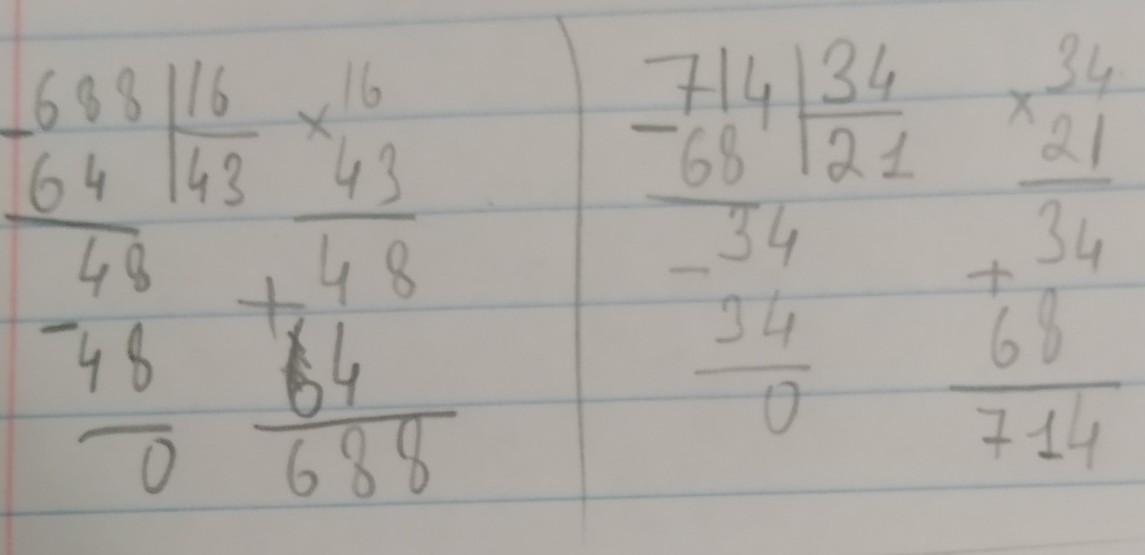 688 | 16
- 64 | 43
48
- 48
0
16
× 43
48
+ 64
688
714 | 34
- 68 | 21
34
- 34
0
34
× 21
34
+ 68
714